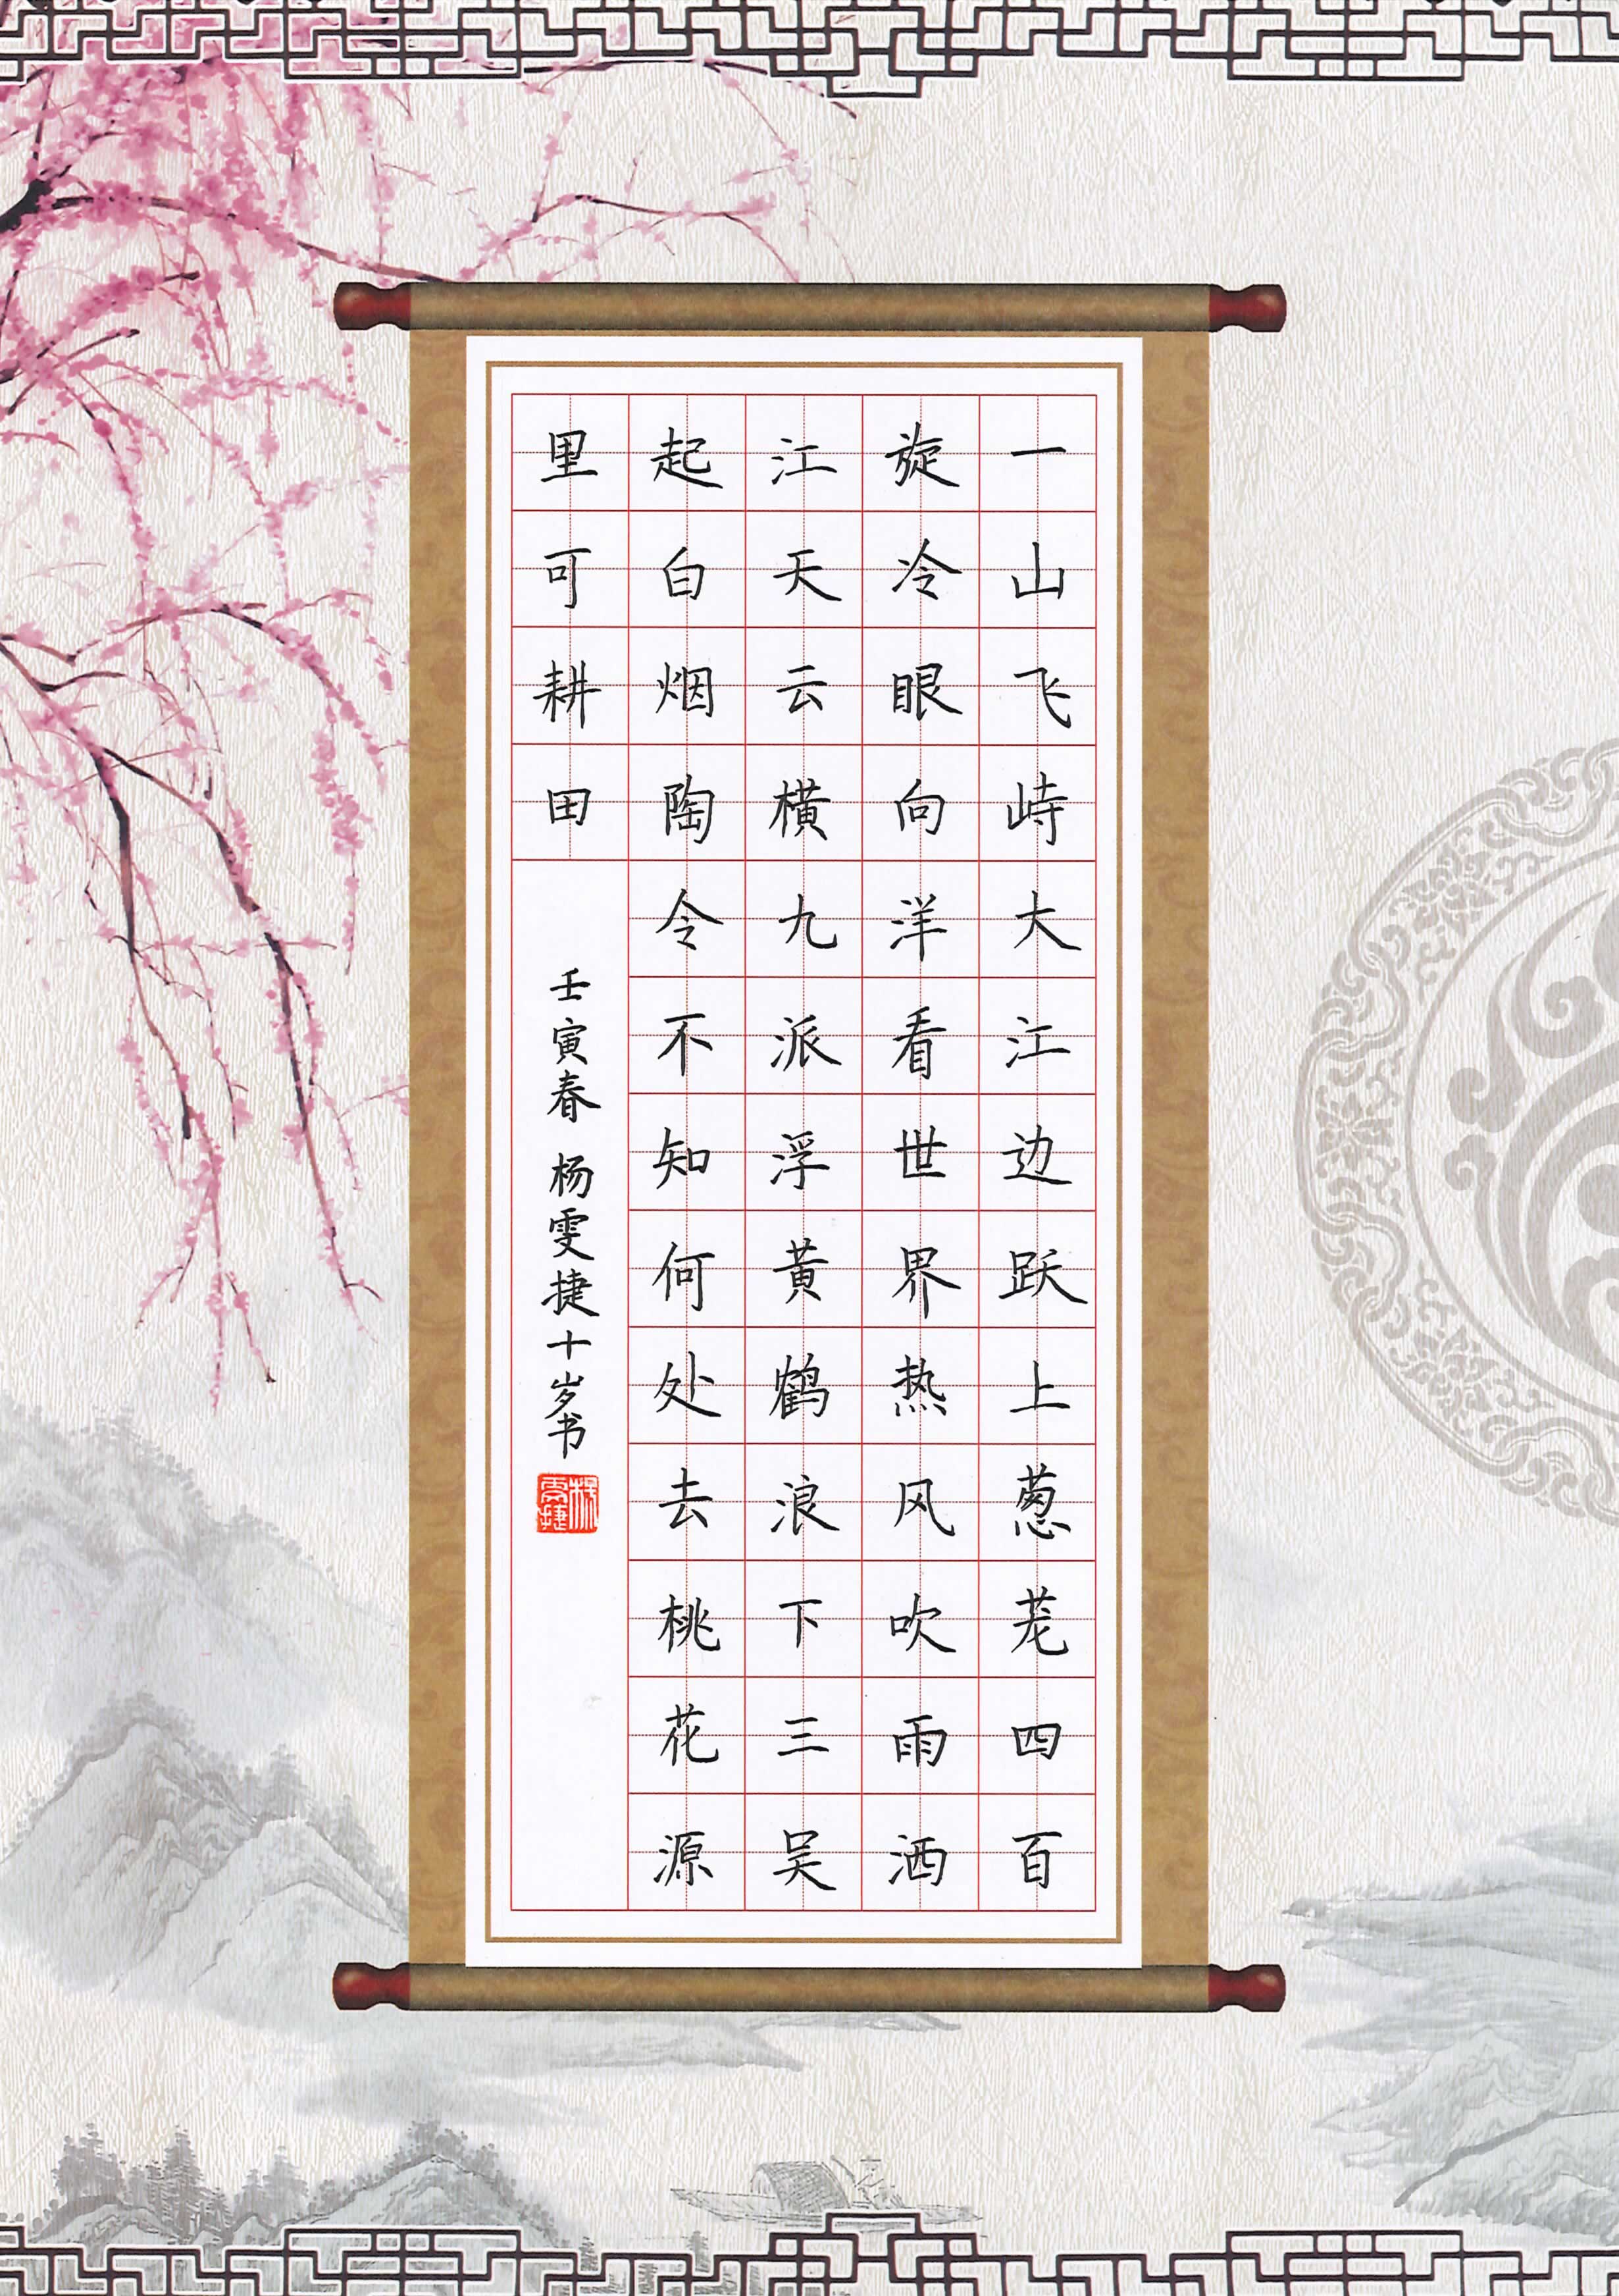 一山飞峙大江边跃上葱茏四百
旋冷眼向洋看世界热风吹雨洒
江天云横九派浮黄鹤浪下三吴
起白烟陶令不知何处去桃花源
里可耕田
壬寅春 杨雯捷十岁书
杨雯捷